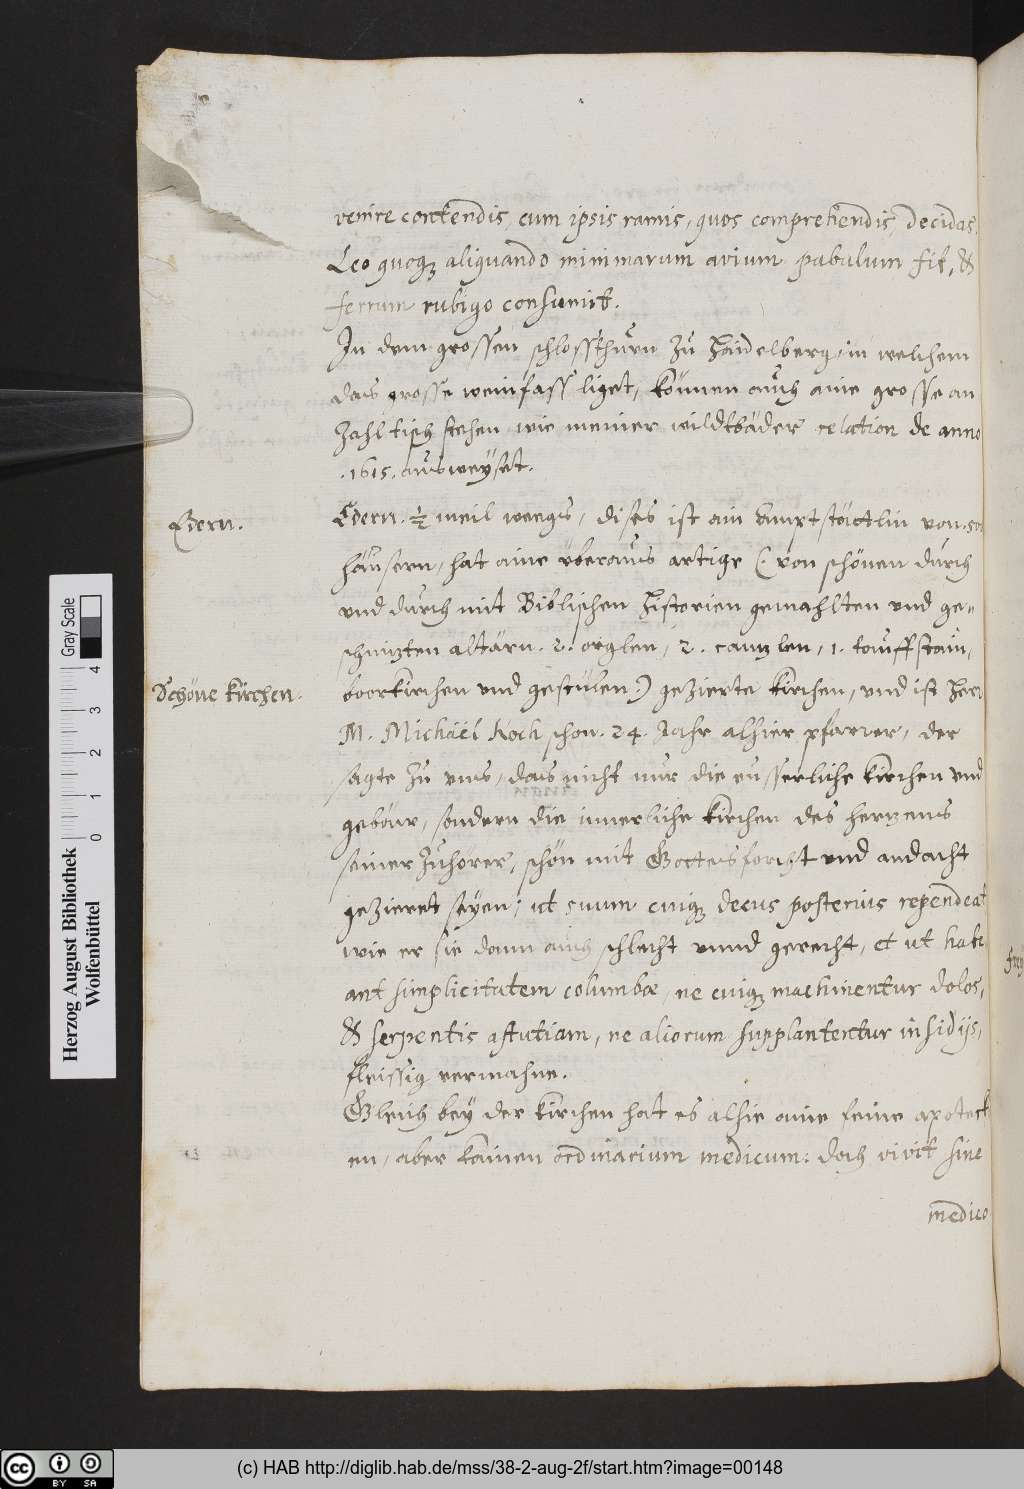 venire contendis, cum ipsis ramis, quos comprehendis, decidas.
Leo quoq; aliquando minimarum avium pabulum fit, &
ferrum rubigo consumit.
In dem grossen schlossthurn zu Haidelberg, in welchem
das grosse weinfass liget, können auch aine grosse an
zahl tisch stehen, wie meiner wildtbäder relation de anno
.1615. ausweyset.
Ebern.
Ebern. ½ meil weegs, dises ist ain Amptstättlin von
häusern, hat aine überaus artige (: von schönen durch
und durch mit Biblischen Historien gemahlten und ge=
schnizten altärn. 2. orglen, 2. canzlen, 1. tauffstain,
Schöne kirchen.
boorkirchen und gestülen:) gezierte kirchen, und ist Herr
M. Michäel Koch schon. 24. Jahr alhier pfarrer, der
sagte zu uns, das nicht nur die eusserliche kirchen und
gebäur, sondern die innerliche kirchen des herzens
seiner zuhörer, schön mit Gottesforcht und andacht
gezieret seyen; ut suum cuiq; decus posterius rependeat
wie er sie dann auch schlecht unnd gerecht, et ut habe
ant simplicitatem columbæ, ne cuiq; machinentur dolos,
& serpentis astutiam, ne aliorum supplantentur insidijs,
fleissig vermahne.
Gleich bey der kirchen hat es alhie aine feine apoteck
en, aber kainen ordinarium medicum: doch vivit sine
medico
Herzog August Bibliothek
Wolfenbüttel
0 1 2 3 4
Gray Scale
cc BY SA
(c) HAB http://diglib.hab.de/mss/38-2-aug-2f/start.htm?image=00148